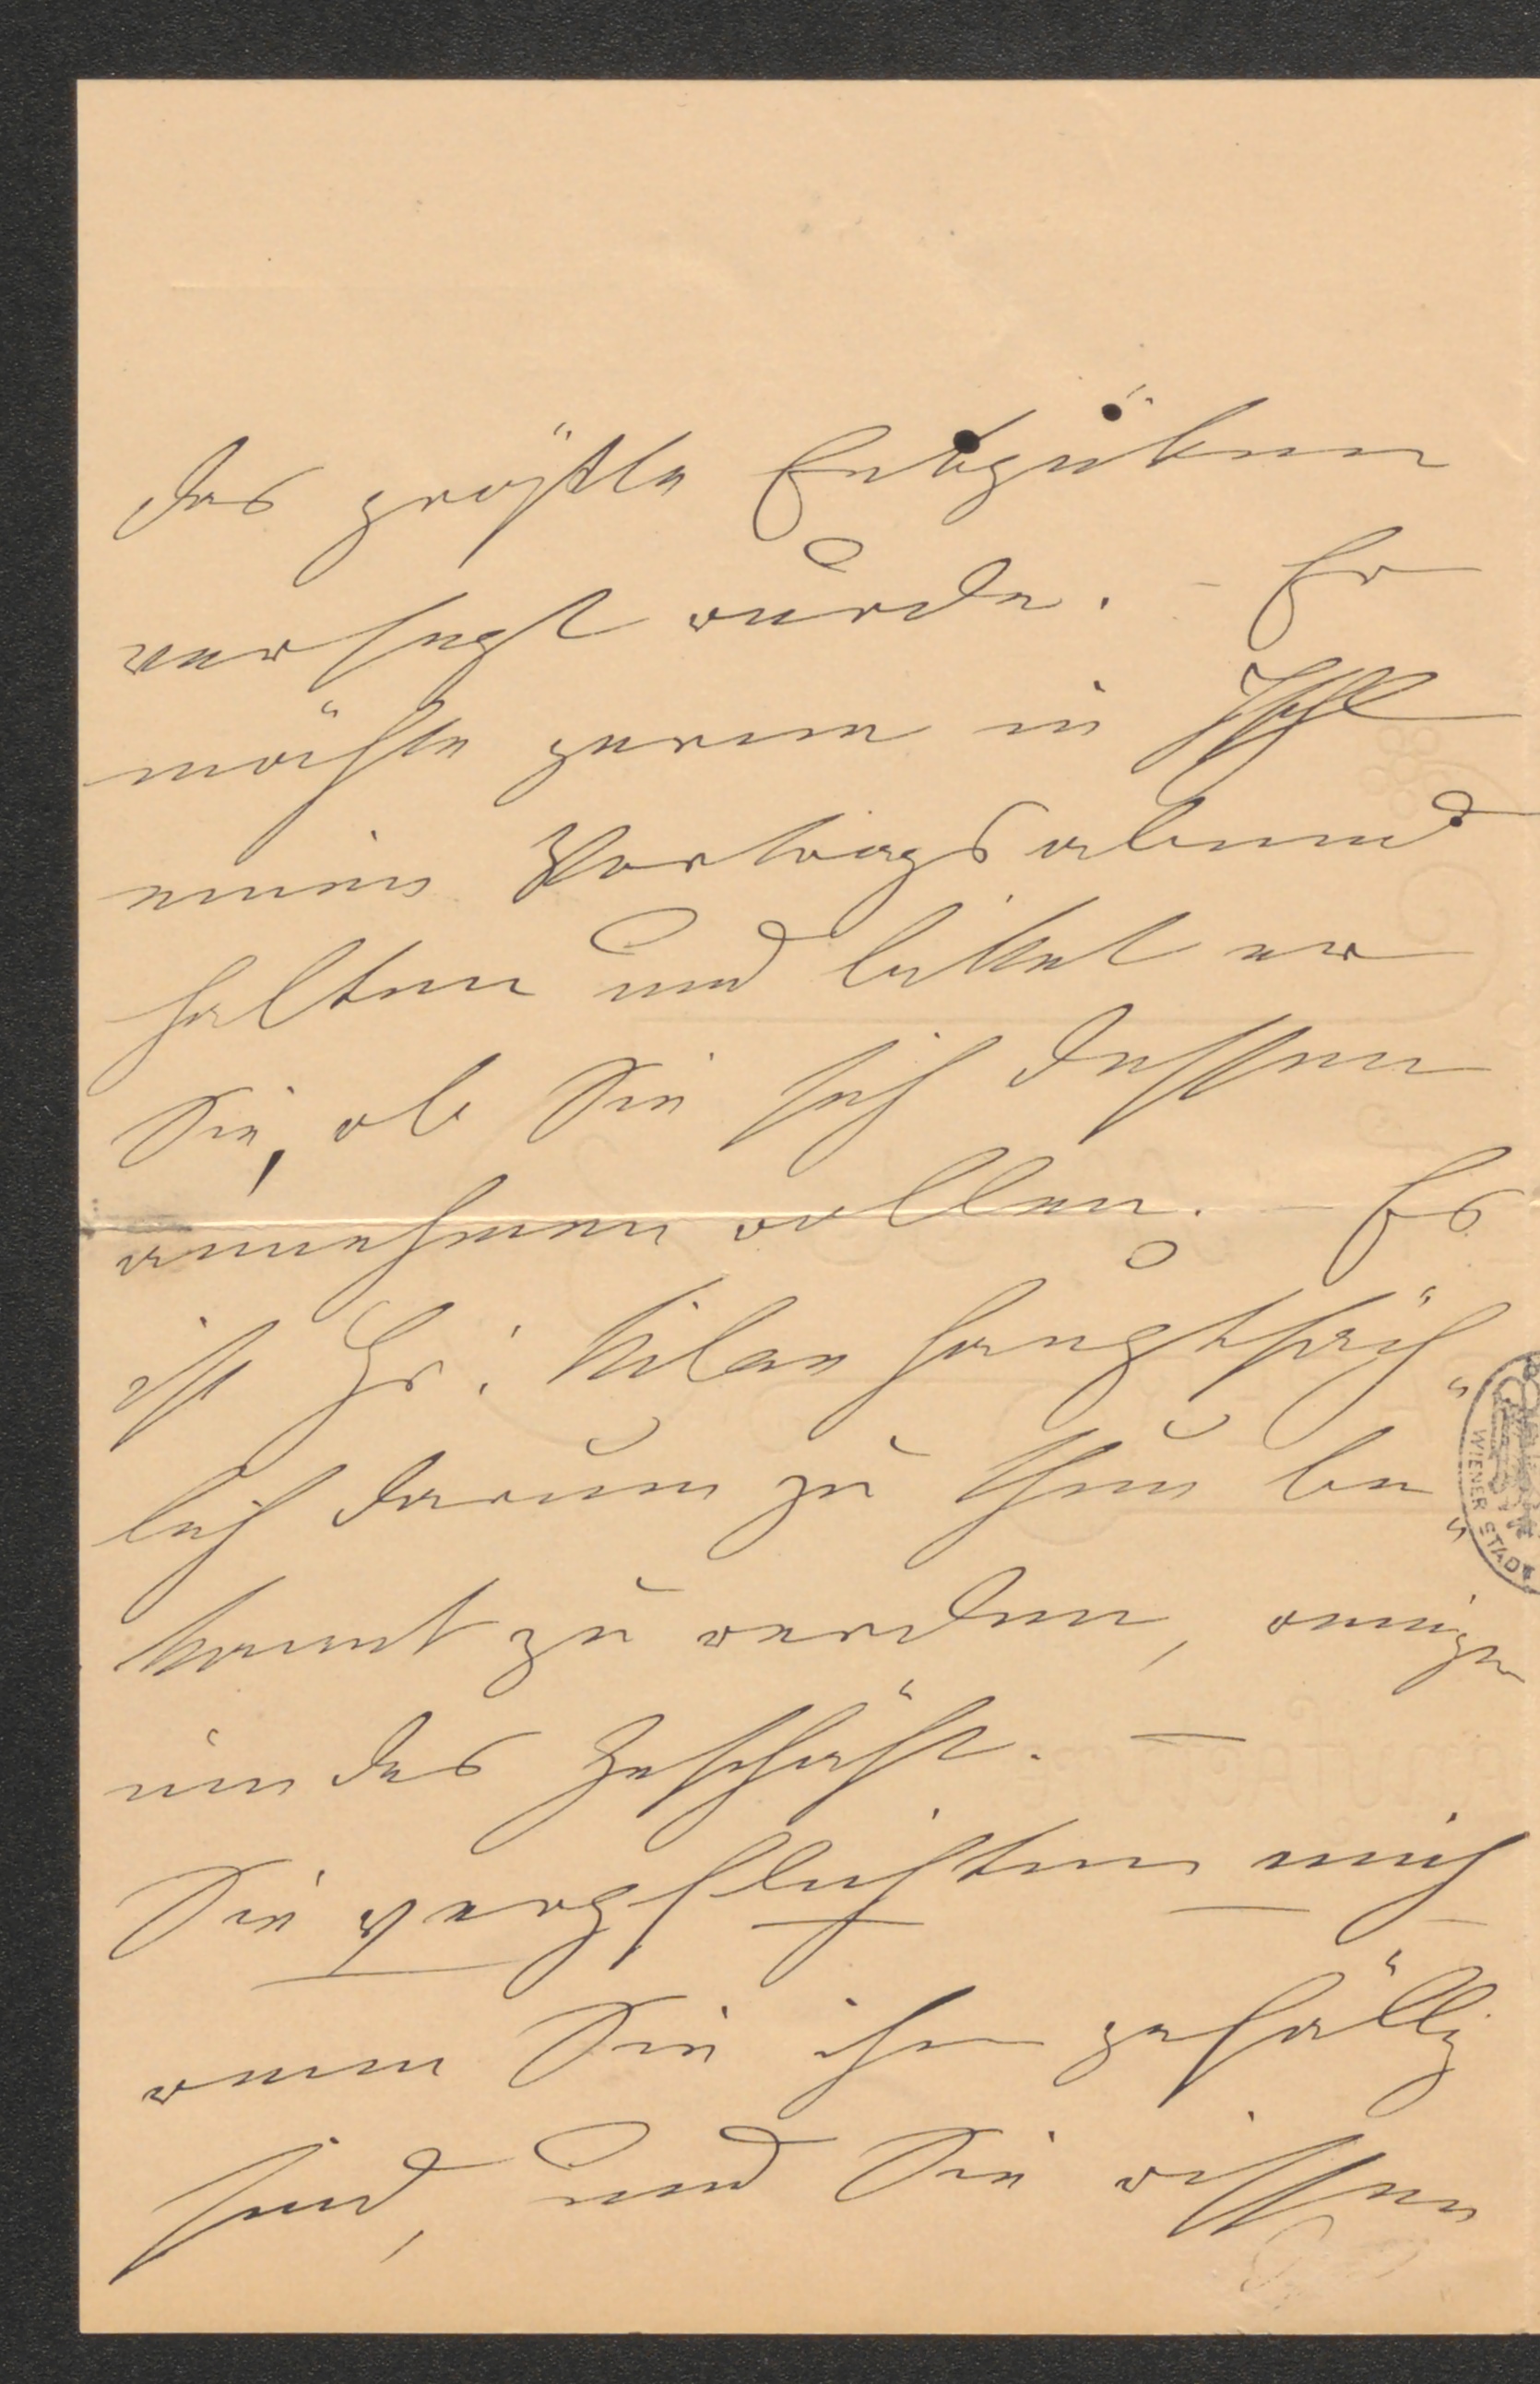 das größte Entzücken
versezt wurde. – Er
möchte gerne in Ischl
einen Vortragsabend
halten und bittet er
Sie, ob Sie sich dessen
annehmen wollen. – Es
ist Hr: Milan hauptsäch"
lich darum zu thun be"
kannt zu werden, weniger
um das Geschäft. –
Sie verpflichten mich
wenn Sie ihm gefällig
sind, und Sie wissen
WIENER STADT